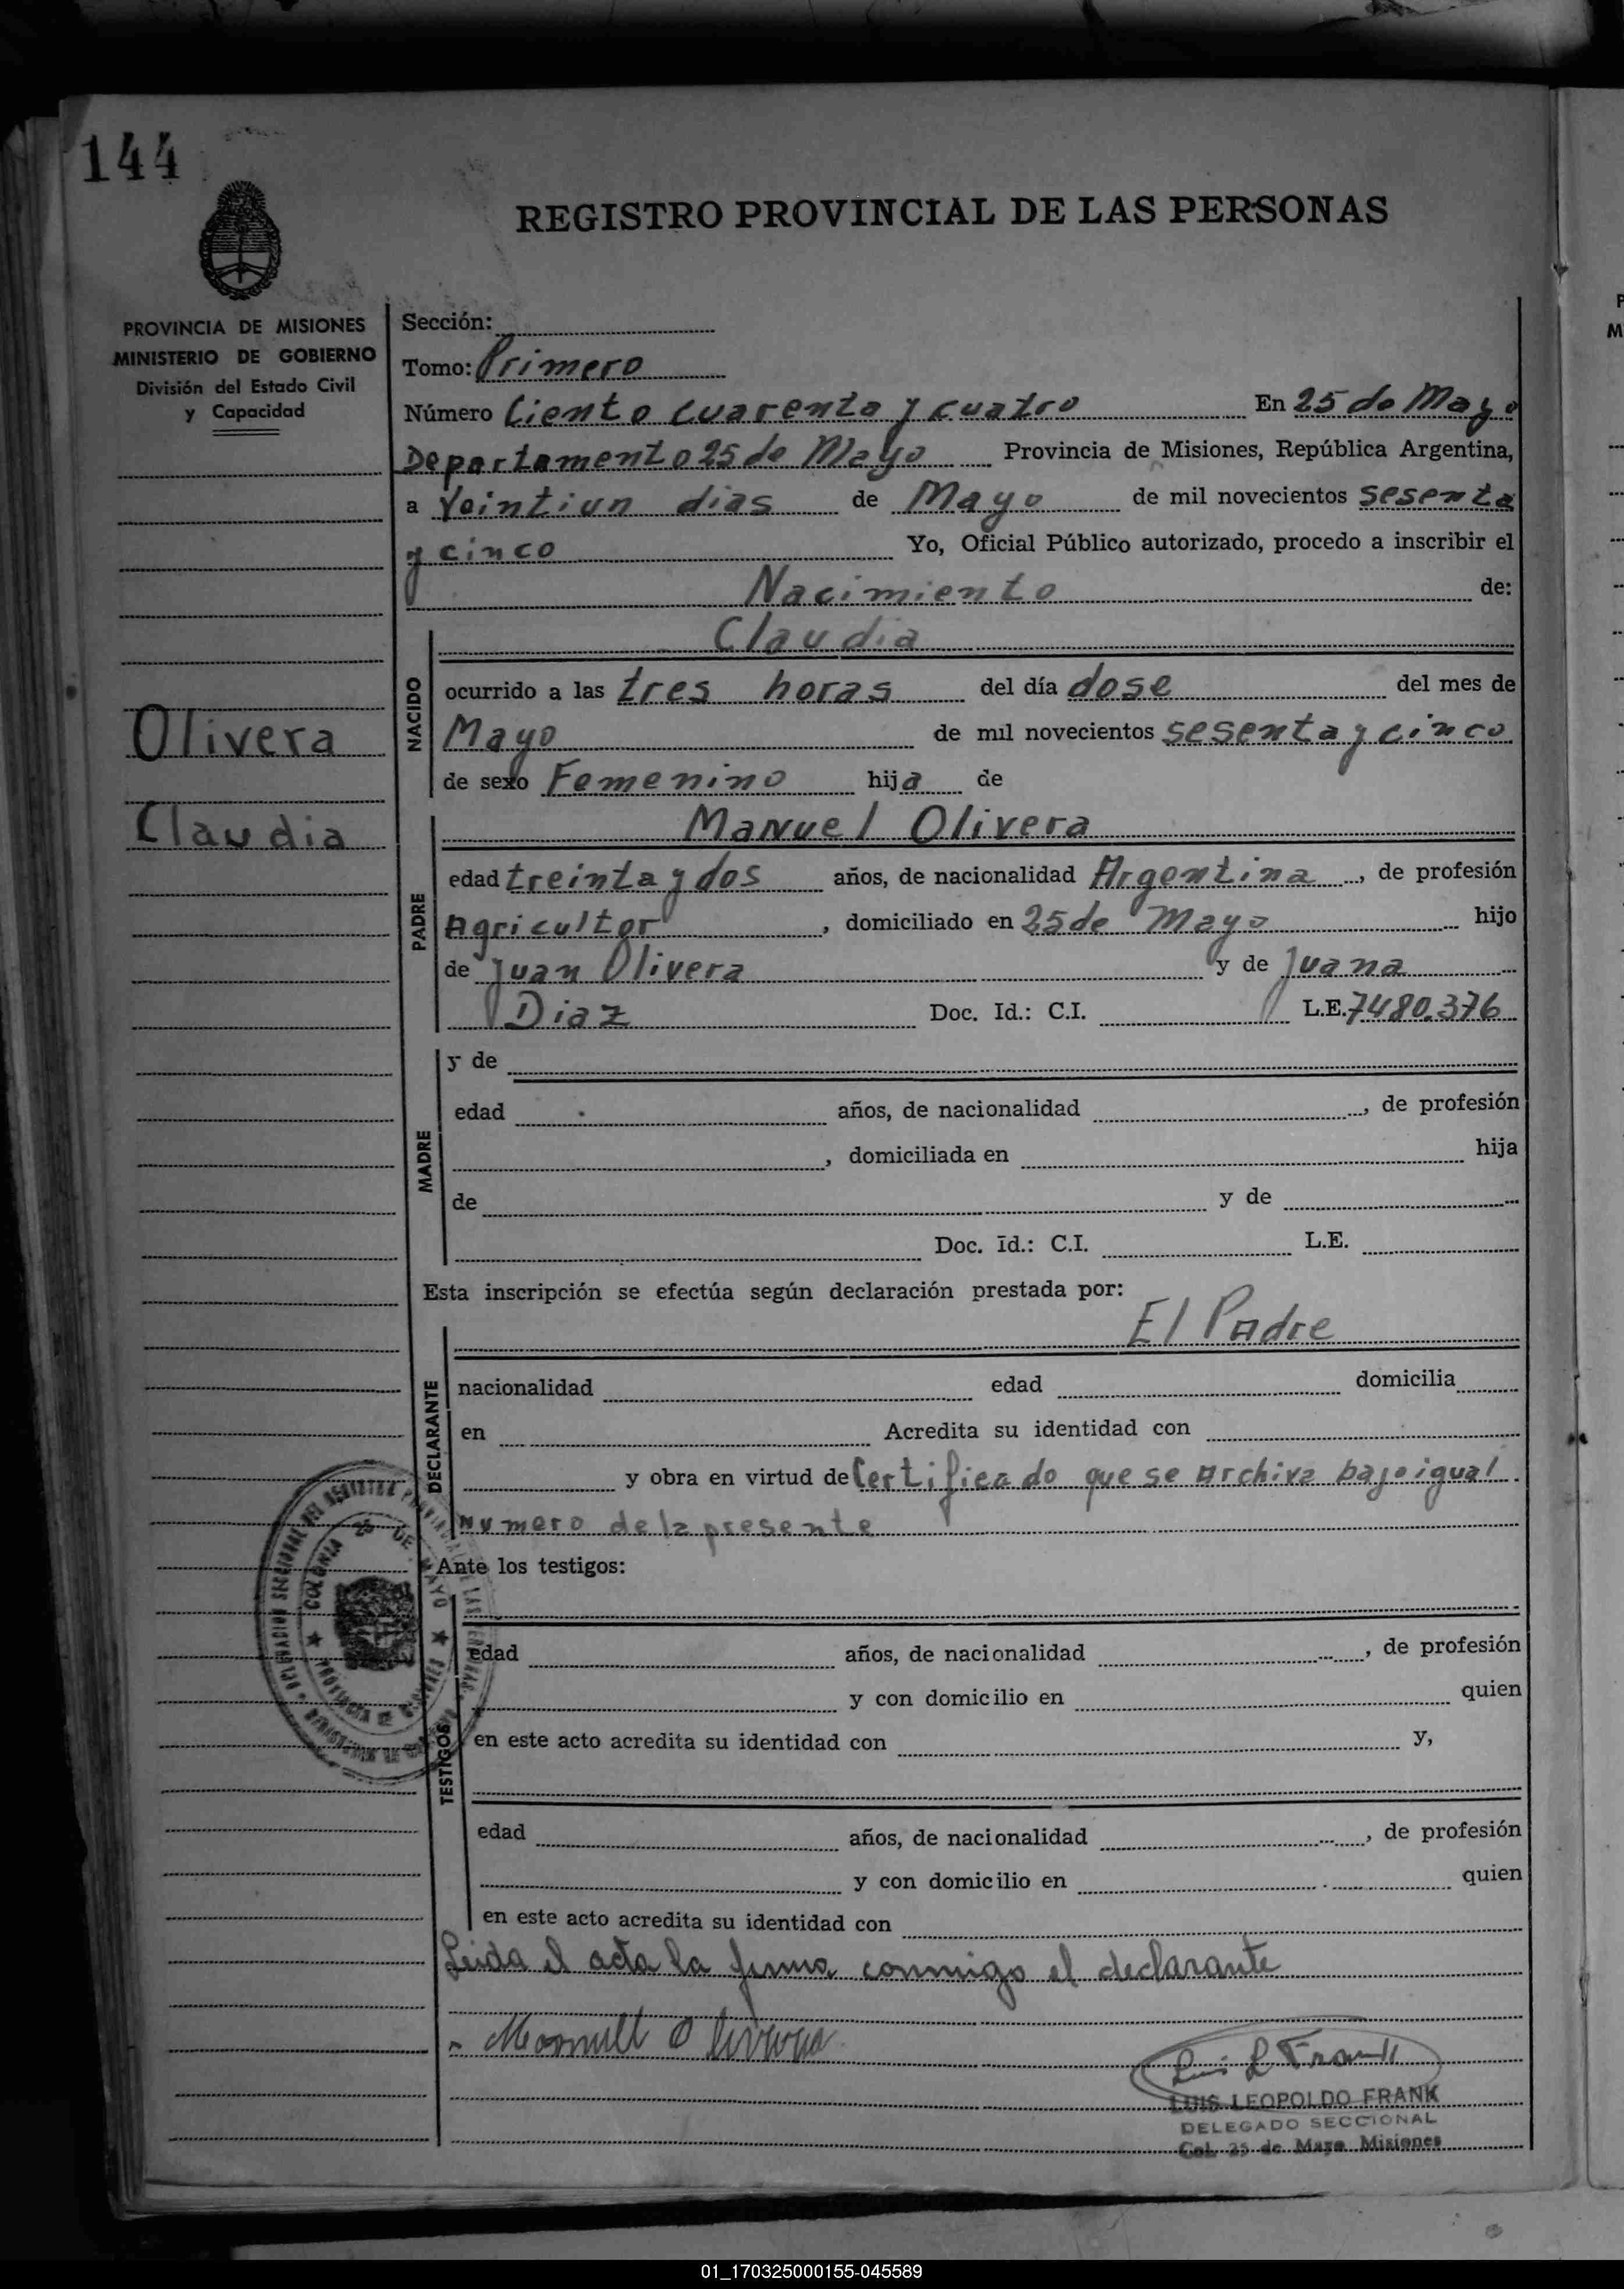 144
REGISTRO PROVINCIAL DE LAS PERSONAS
PROVINCIA DE MISIONES
MINISTERIO DE GOBIERNO
División del Estado Civil
y Capacidad
Sección:
Tomo: Primero
Número Ciento cuarenta y cuatro En 25 de Mayo
Departamento 25 de Mayo Provincia de Misiones, República Argentina,
a Veintiun dias de Mayo de mil novecientos sesenta
y cinco Yo, Oficial Público autorizado, procedo a inscribir el
Nacimiento de:
Claudia
NACIDO
ocurrido a las tres horas del día dose del mes de
Mayo de mil novecientos sesenta y cinco
de sexo Femenino hija de
Olivera
Claudia
Manuel Olivera
PADRE
edad treinta y dos años, de nacionalidad Argentina, de profesión
Agricultor, domiciliado en 25 de Mayo hijo
de Juan Olivera y de Juana
Diaz Doc. Id.: C.I. L.E. 7480.376
MADRE
y de
edad años, de nacionalidad , de profesión
, domiciliada en hija
de y de
Doc. Id.: C.I. L.E.
Esta inscripción se efectúa según declaración prestada por:
El Padre
DECLARANTE
nacionalidad edad domicilia
en Acredita su identidad con
y obra en virtud de Certificado que se Archiva bajo igual
Numero de la presente
COLONIA 25 DE MAYO
Ante los testigos:
TESTIGOS
edad años, de nacionalidad , de profesión
y con domicilio en quien
en este acto acredita su identidad con y,
edad años, de nacionalidad , de profesión
y con domicilio en quien
en este acto acredita su identidad con
Leida el acta la firma conmigo el declarante
Manuel Olivera
Luis L Frank
LUIS LEOPOLDO FRANK
DELEGADO SECCIONAL
Col. 25 de Mayo Misiones
01_170325000155-045589